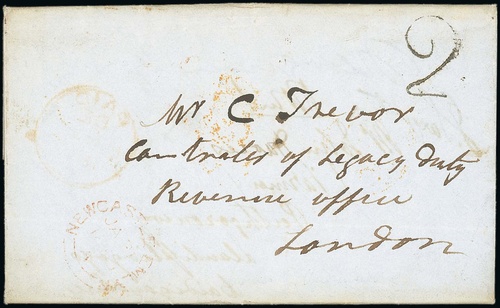 2
Mr C Trevor
Controller of Legacy Duty
Revenue office
London
NEWCAS